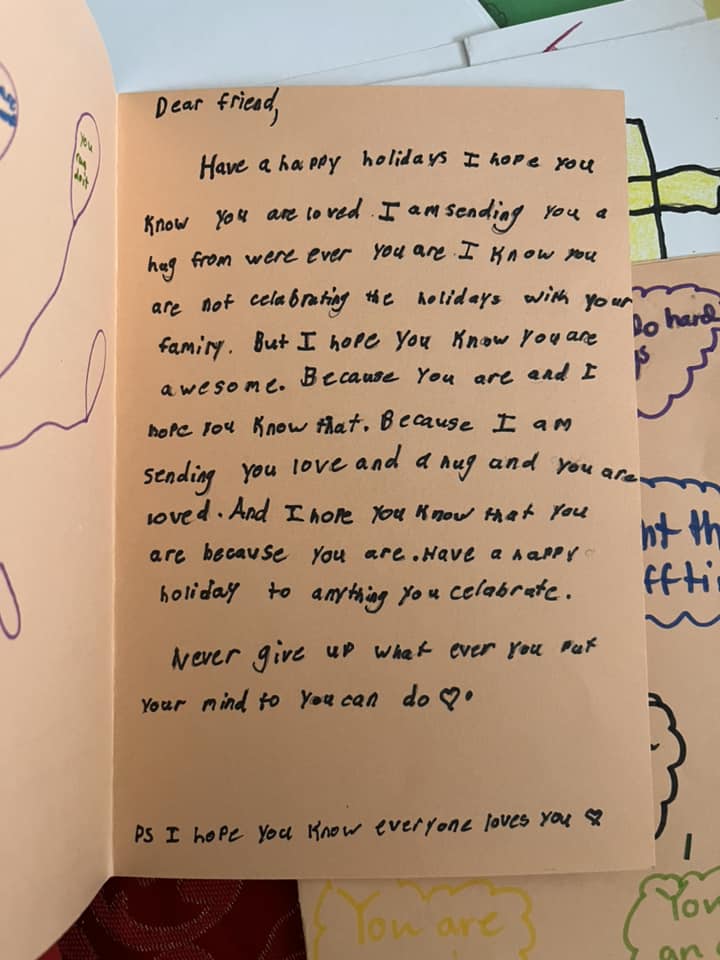 you
can
do it
Dear friend,
Have a happy holidays I hope you
know you are loved. I am sending you a
hug from were ever you are. I know you
are not celabrating the holidays with your
family. But I hope you know you are
awesome. Because you are and I
hope you know that. Because I am
sending you love and a hug and you are
loved. And I hope you know that you
are because you are. Have a happy
holiday to anything you celabrate.
Never give up what ever you put
your mind to you can do ♡.
PS I hope you know everyone loves you ♡
do hard
You are
You